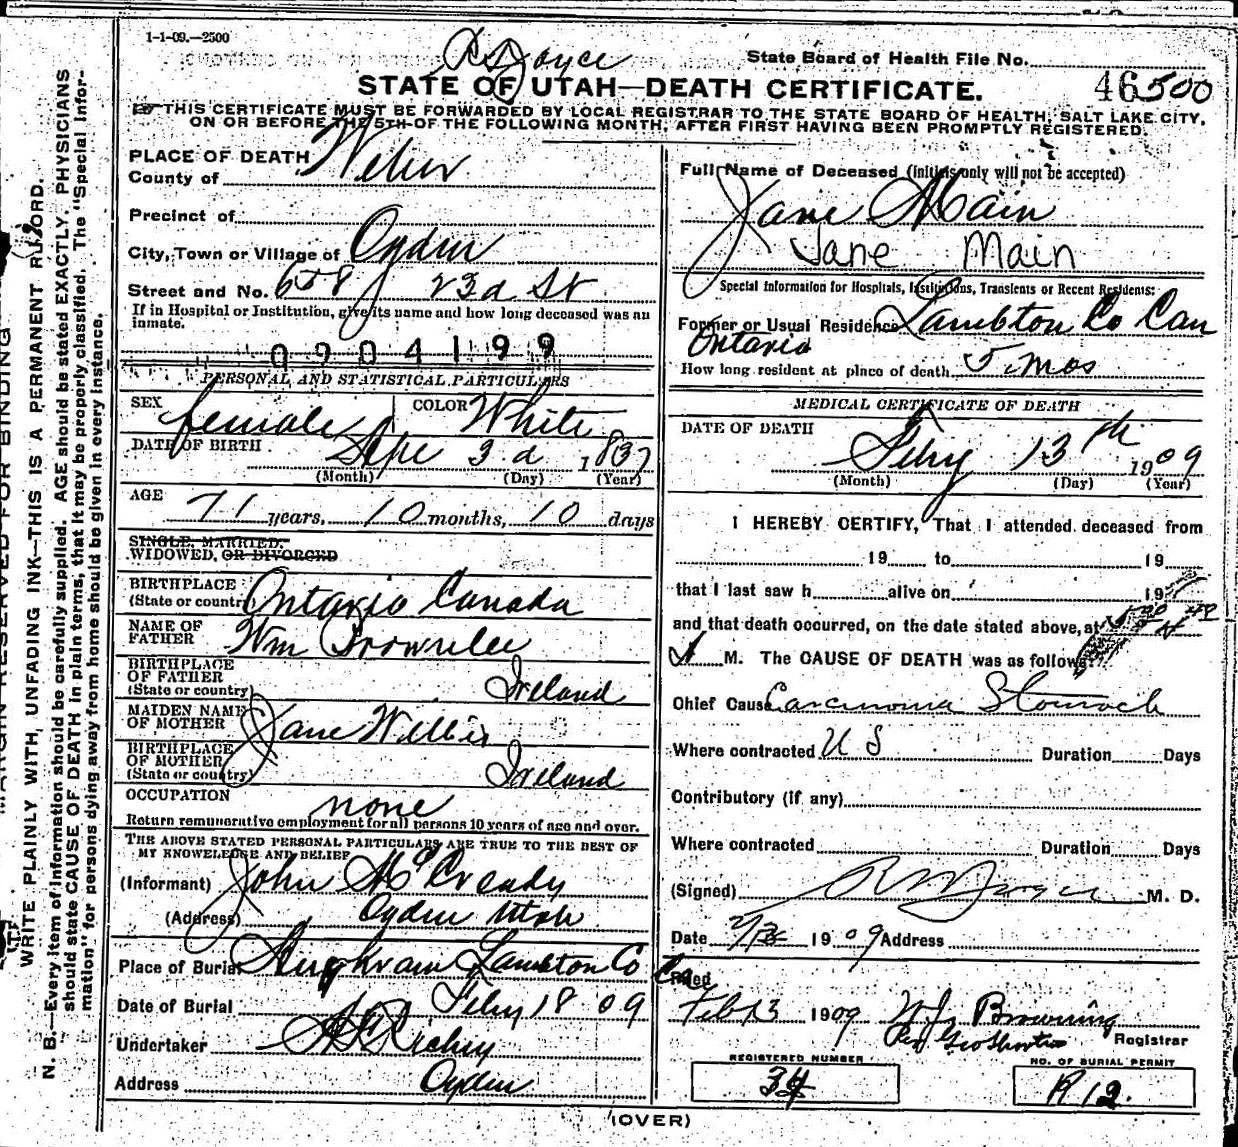 1-1-09.—2500
State Board of Health File No.
46500
STATE OF UTAH—DEATH CERTIFICATE.
THIS CERTIFICATE MUST BE FORWARDED BY LOCAL REGISTRAR TO THE STATE BOARD OF HEALTH, SALT LAKE CITY,
ON OR BEFORE THE 5TH OF THE FOLLOWING MONTH, AFTER FIRST HAVING BEEN PROMPTLY REGISTERED.
PLACE OF DEATH
County of Weber
Precinct of
City, Town or Village of Ogden
Street and No. 658 23d St
If in Hospital or Institution, give its name and how long deceased was an
inmate.
0904199
PERSONAL AND STATISTICAL PARTICULARS
SEX female COLOR White
DATE OF BIRTH Sept 3d 1837
(Month) (Day) (Year)
AGE
71 years, 10 months, 10 days
SINGLE, MARRIED,
WIDOWED, OR DIVORCED
BIRTHPLACE
(State or country) Ontario Canada
NAME OF
FATHER Wm Brownlee
BIRTHPLACE
OF FATHER
(State or country) Ireland
MAIDEN NAME
OF MOTHER Jane Willis
BIRTHPLACE
OF MOTHER
(State or country) Ireland
OCCUPATION none
Return remunerative employment for all persons 10 years of age and over.
THE ABOVE STATED PERSONAL PARTICULARS ARE TRUE TO THE BEST OF
MY KNOWELEDGE AND BELIEF
(Informant) John McCready
(Address) Ogden Utah
Place of Burial Lambton Co Ca
Date of Burial Feby 18 09
Undertaker
Address Ogden
Full Name of Deceased (initials only will not be accepted)
Jane Main
Jane Main
Special Information for Hospitals, Institutions, Transients or Recent Residents:
Former or Usual Residence Lambton Co Can
Ontario
How long resident at place of death 5 mos
MEDICAL CERTIFICATE OF DEATH
DATE OF DEATH
Feby 13th 1909
(Month) (Day) (Year)
I HEREBY CERTIFY, That I attended deceased from
19 to 19
that I last saw h alive on 19
and that death occurred, on the date stated above, at
M. The CAUSE OF DEATH was as follows:
Chief Cause Carcinoma Stomach
Where contracted U S Duration Days
Contributory (if any)
Where contracted Duration Days
(Signed) M. D.
Date 1909 Address
Filed
Feb 13 1909 Browning
Registrar
REGISTERED NUMBER
34
NO. OF BURIAL PERMIT
R 12.
(OVER)
MARGIN RESERVED FOR BINDING
WRITE PLAINLY WITH, UNFADING INK—THIS IS A PERMANENT RECORD.
N. B.—Every item of information should be carefully supplied. AGE should be stated EXACTLY. PHYSICIANS
should state CAUSE OF DEATH in plain terms, that it may be properly classified. The "Special Infor-
mation" for persons dying away from home should be given in every instance.